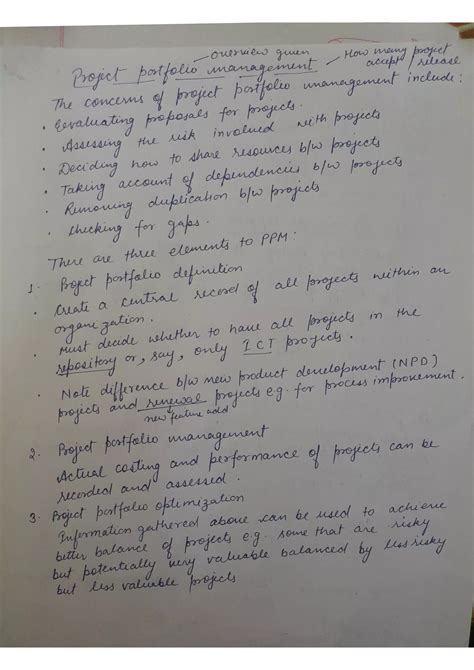 overview given
How many project
accept / release
Project portfolio management
The concerns of project portfolio management include:
• Eevaluating proposals for projects.
• Assessing the risk involved with projects
• Deciding how to share resources b/w projects
• Taking account of dependencies b/w projects
• Removing duplication b/w projects
• checking for gaps.
There are three elements to PPM:
1. Project portfolio definition
• Create a central record of all projects within an
organization.
• Must decide whether to have all projects in the
repository or, say, only ICT projects.
• Note difference b/w new product development (NPD)
projects and renewal projects e.g. for process improvement.
new feature add
2. Project portfolio management
Actual costing and performance of projects can be
recorded and assessed.
3. Project portfolio optimization
Information gathered above can be used to achieve
better balance of projects e.g. some that are risky
but potentially very valuable balanced by less risky
but less valuable projects